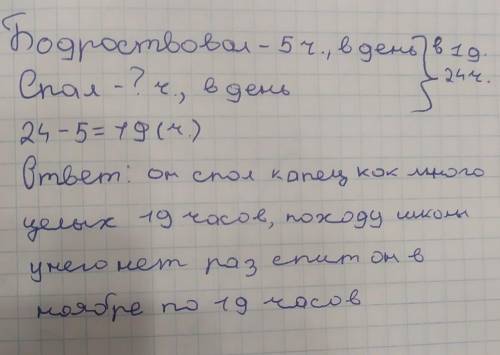 Бодроствовал - 5 ч., в день } в 1 д.
Спал - ? ч., в день 24 ч.
24 - 5 = 19 (ч.)
Ответ: он спол капец как много
целых 19 часов, походу школы
унего нет раз спит он в
ноябре по 19 часов